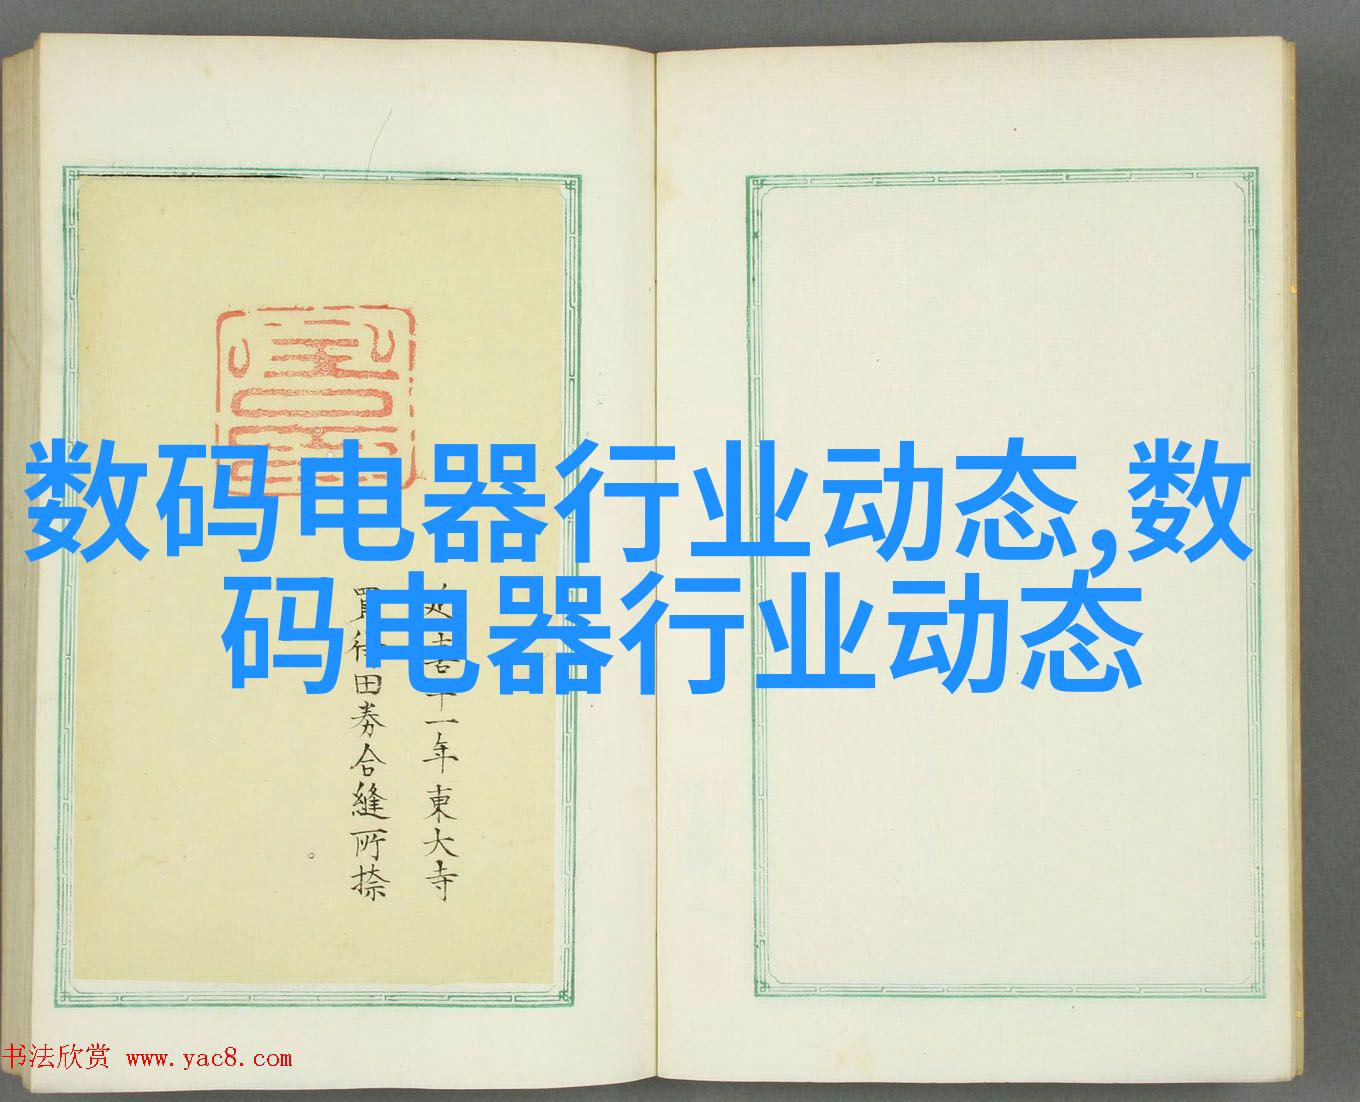 数码电器行业动态,数
码电器行业动态
延喜十一年東大寺
買得田券合縫所捺
书法欣赏 www.yac8.com